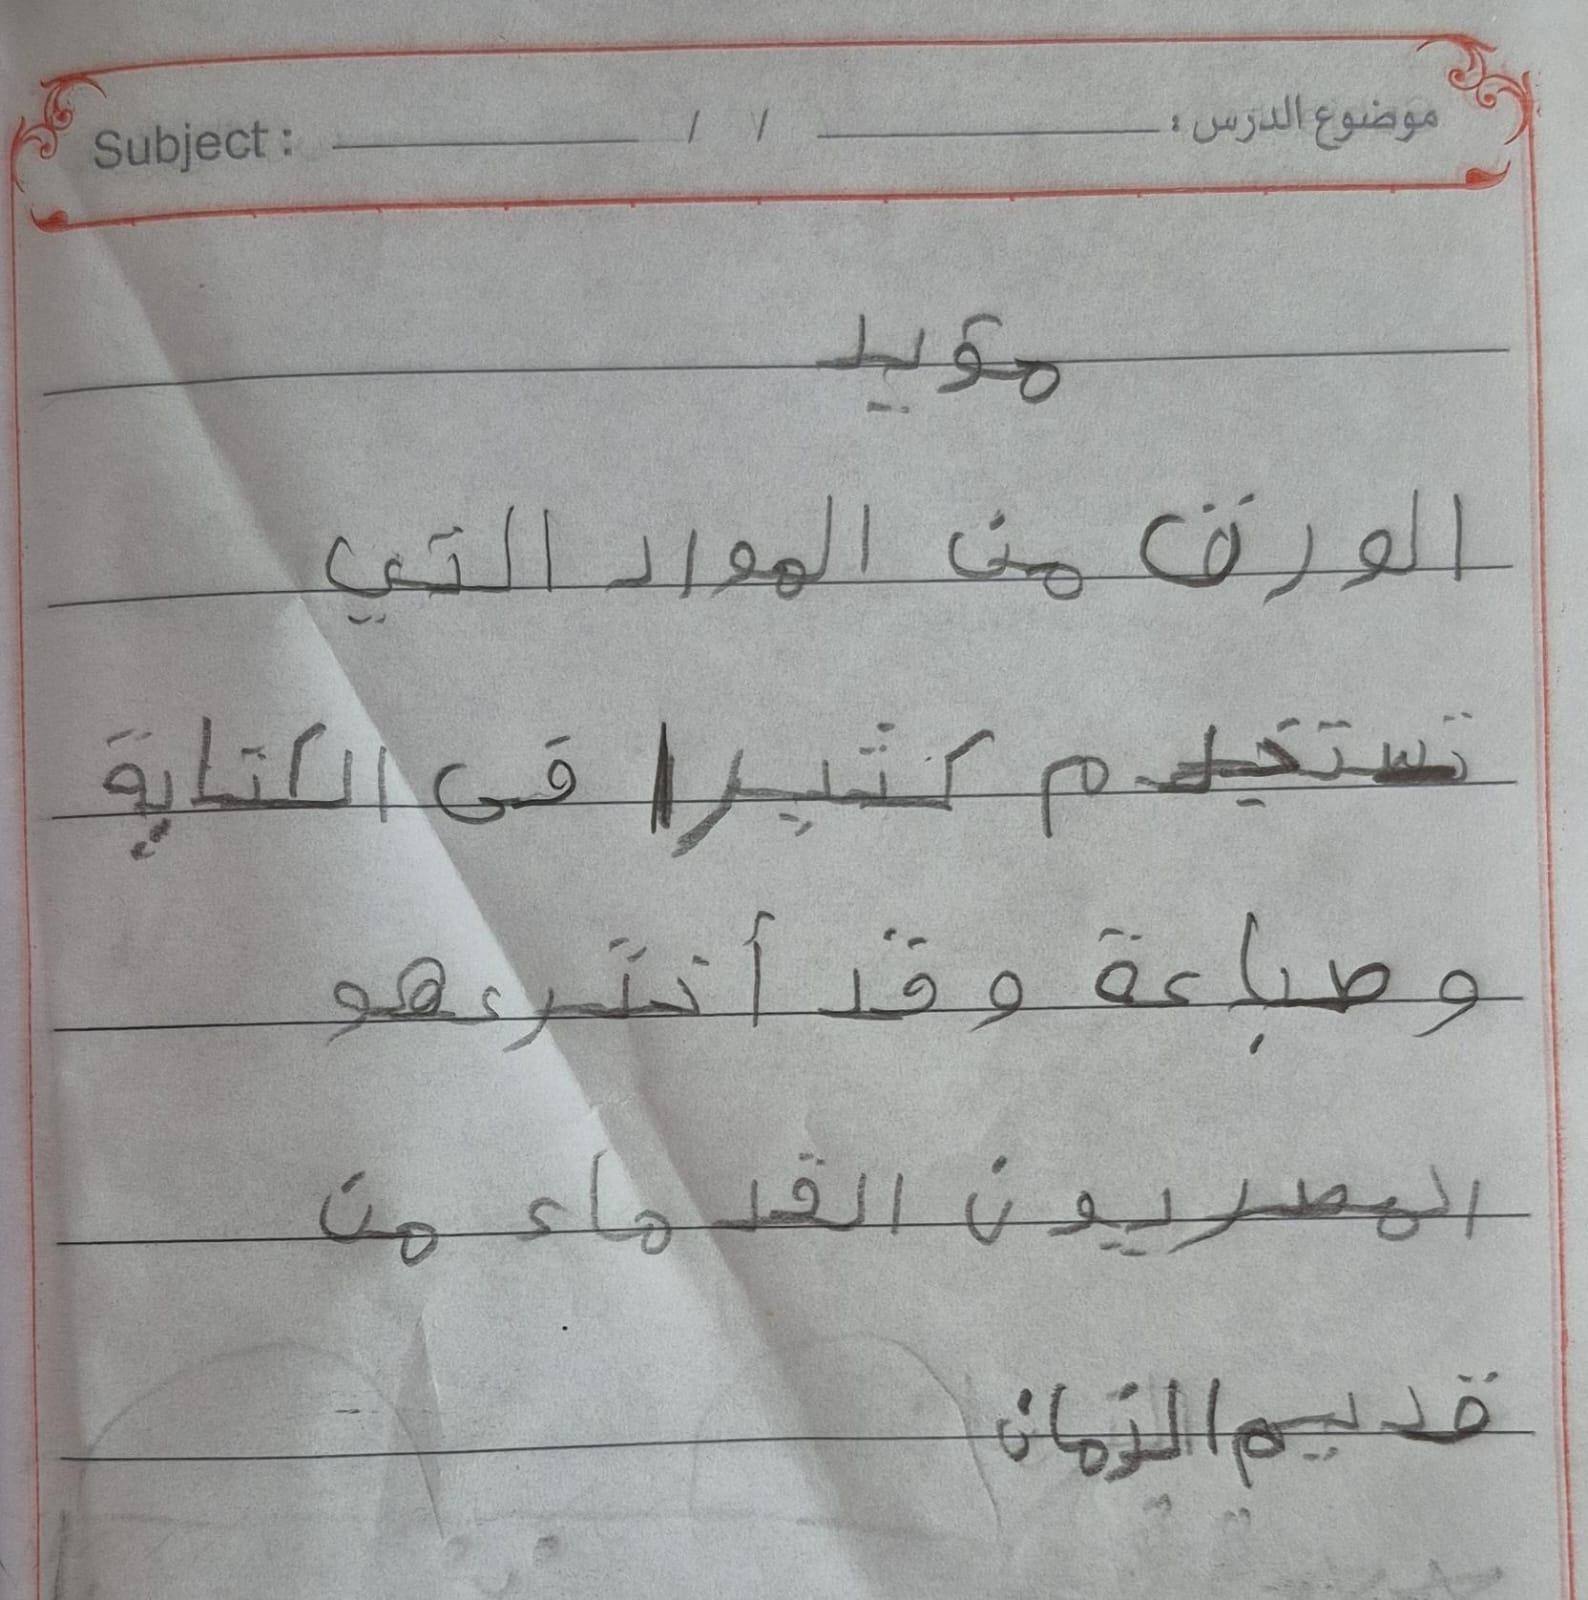 موضوع الدرس : / / Subject :
مؤيد
الورق من المواد التي
تستخدم كثيرا في الكتابة
وصباعة وقد أخترعهو
المصريون القدماء من
قديم الزمان